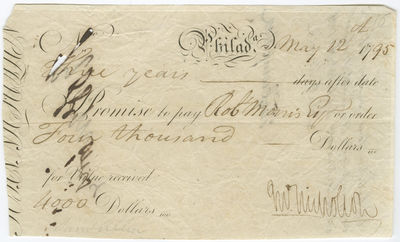 Philad.a May 12th 1795
Three years days after date
I Promise to pay Robt Morris Esq or order
Four thousand Dollars
for Value received
4000 Dollars
Jno Nicholson